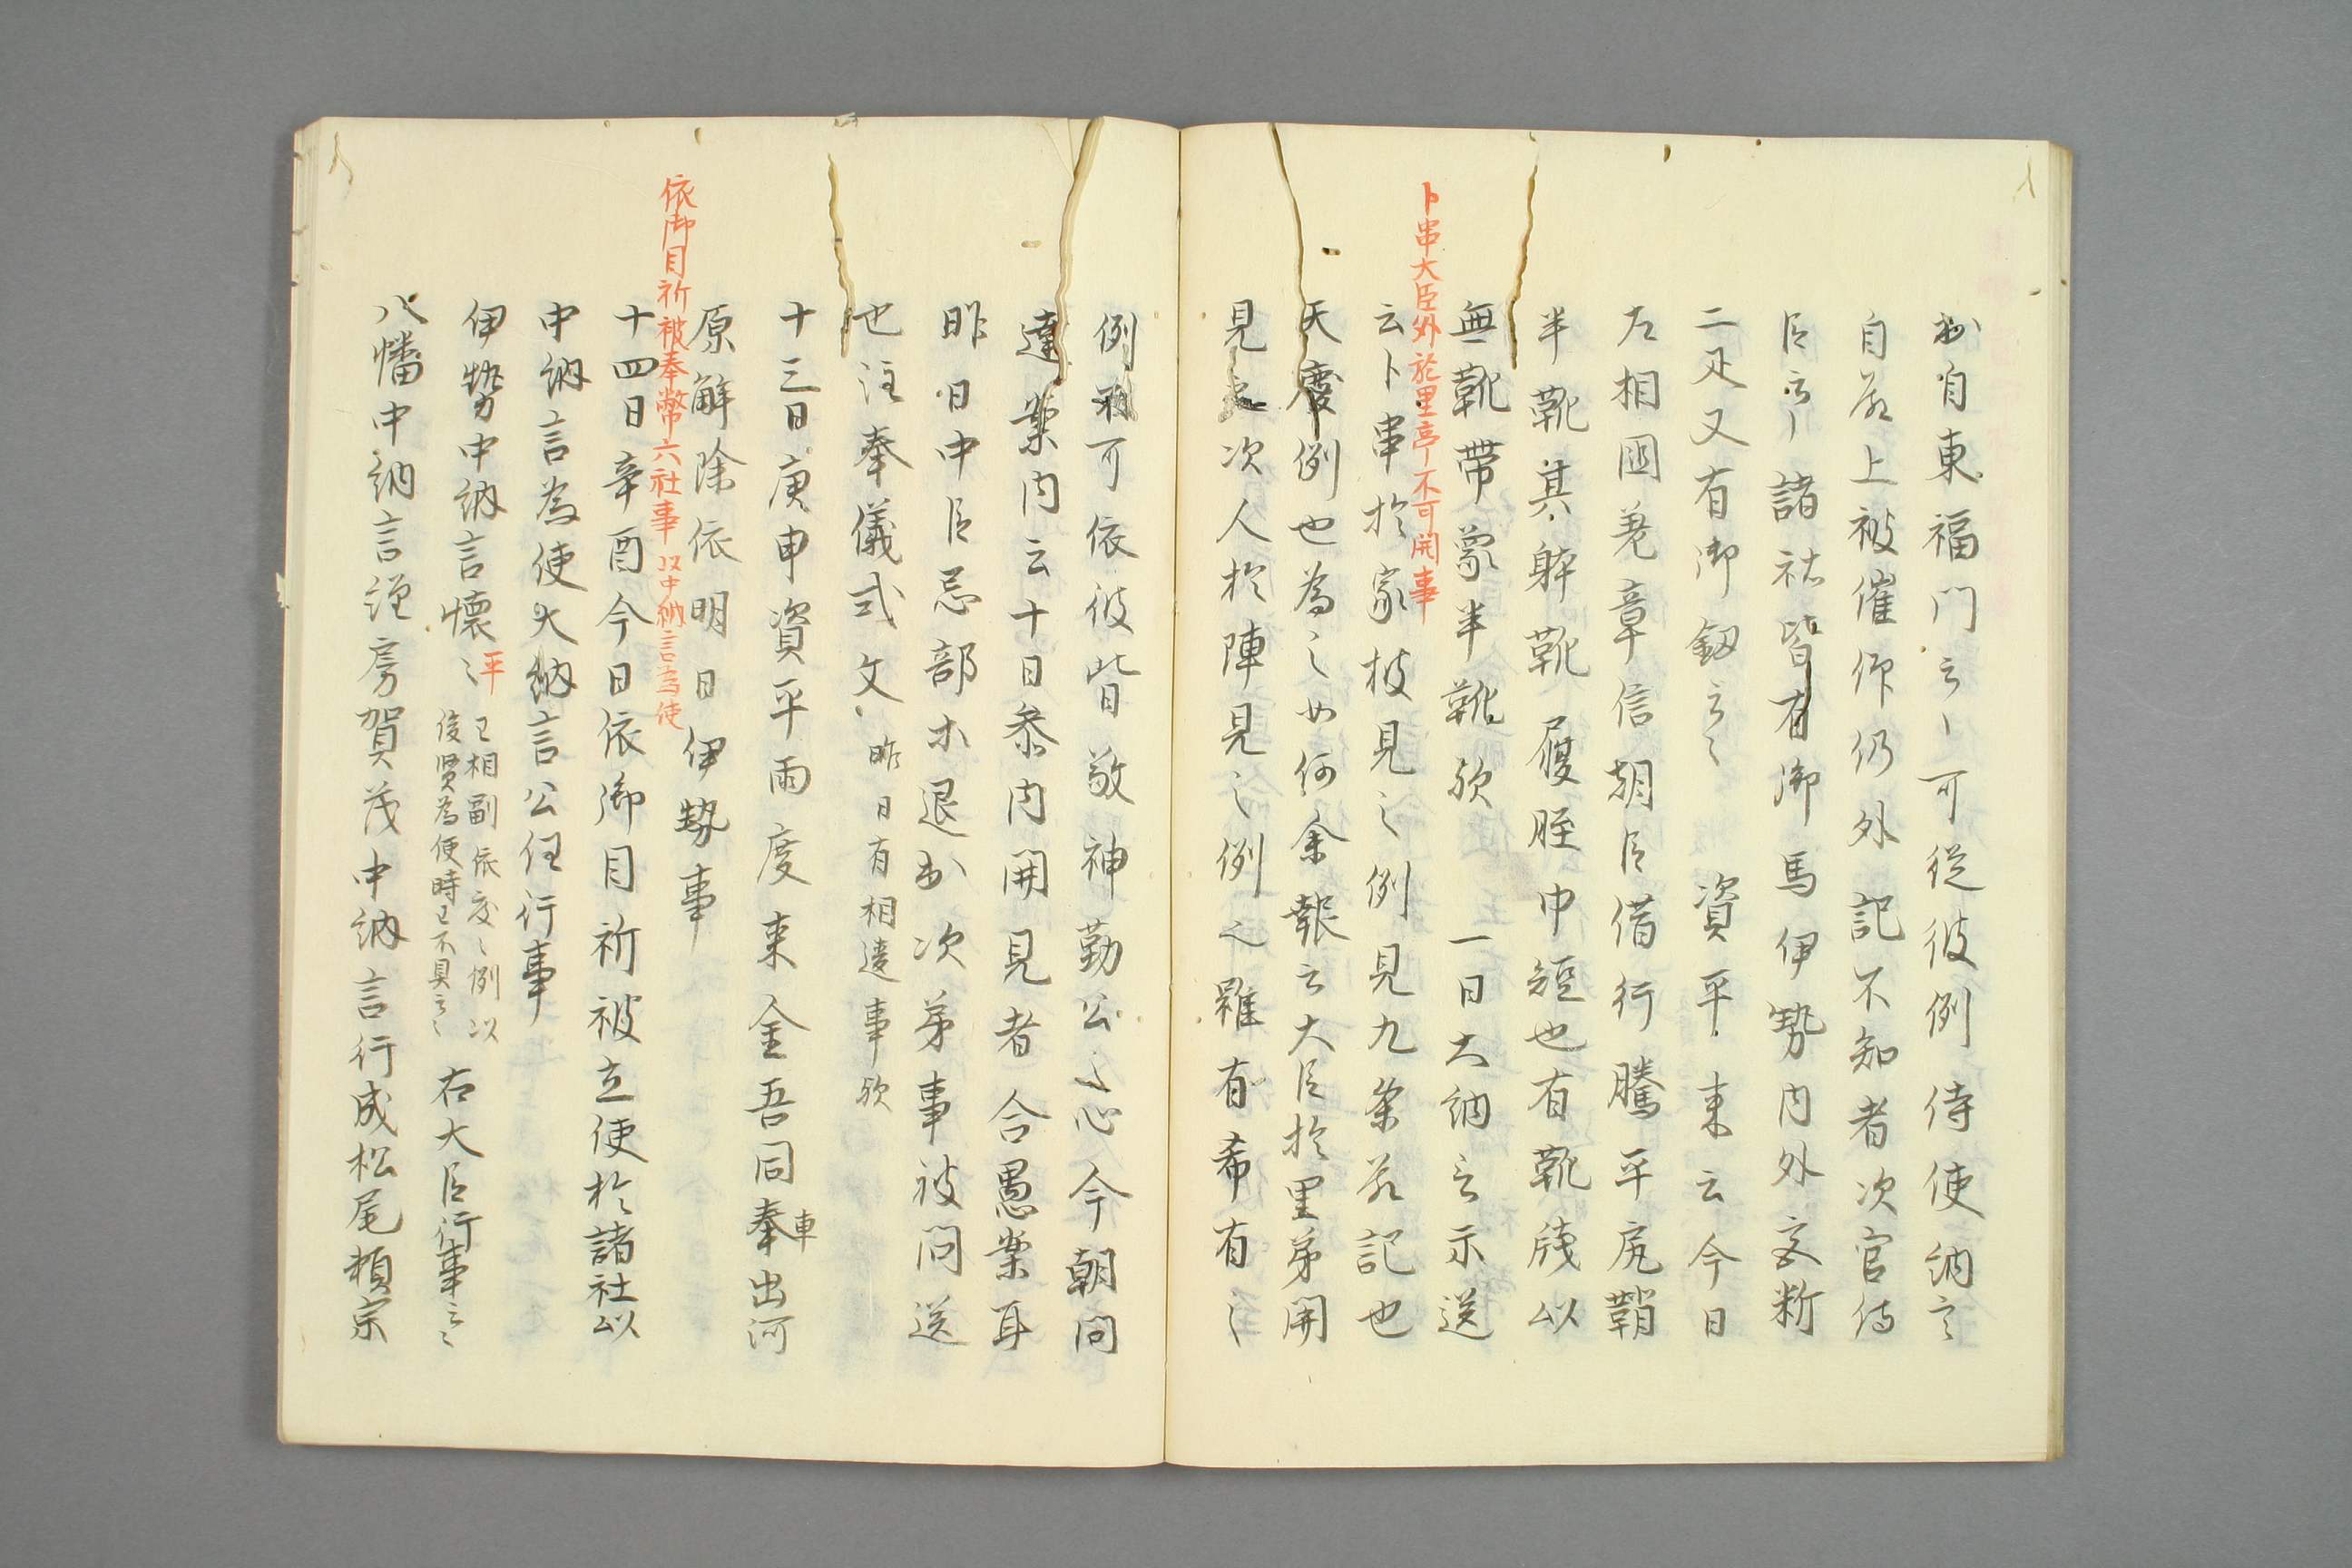 出自東福門云〻可従彼例侍使納言
自兼上被催仰仍外記不知者次官侍
臣云〻諸社皆有御馬伊勢内外宮料
二疋又有御釼云〻 資平来云今日
左相國兼章信朝臣借行騰平尻鞘
半靴其躰靴履胫巾短也有靴胯以
無靴帯象半靴欤 一日大納言示送
卜串大臣外於里亭不可開事
云卜串於家披見之例見九条記也
天慶例也為之如何余報云大臣於里第開
見之次人於陣見之例也雖有希有之
例我可依彼皆敬神勤公之心今朝問
達案内云十日参内開見者合愚案耳
昨日中臣忌部未退出次第事被問送
也注奉儀式文昨日有相違事欤
十三日庚申資平両度来金吾同車奉出河
原解除依明日伊勢事
依御目祈被奉幣六社事 以中納言為使
十四日辛酉今日依御目祈被立使於諸社以
中納言為使大納言公任行事
伊勢中納言懐〻平
王相副依度〻例以
俊賢為使時王不具云〻
右大臣行事云〻
八幡中納言経房賀茂中納言行成松尾頼宗